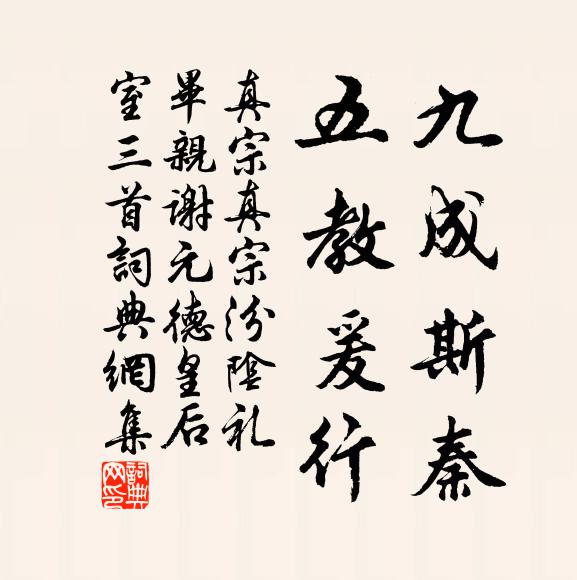 九成斯秦
五教爰行
真宗真宗汾陰礼
畢親謝元德皇后
室三首詞典網集
詞典
网印